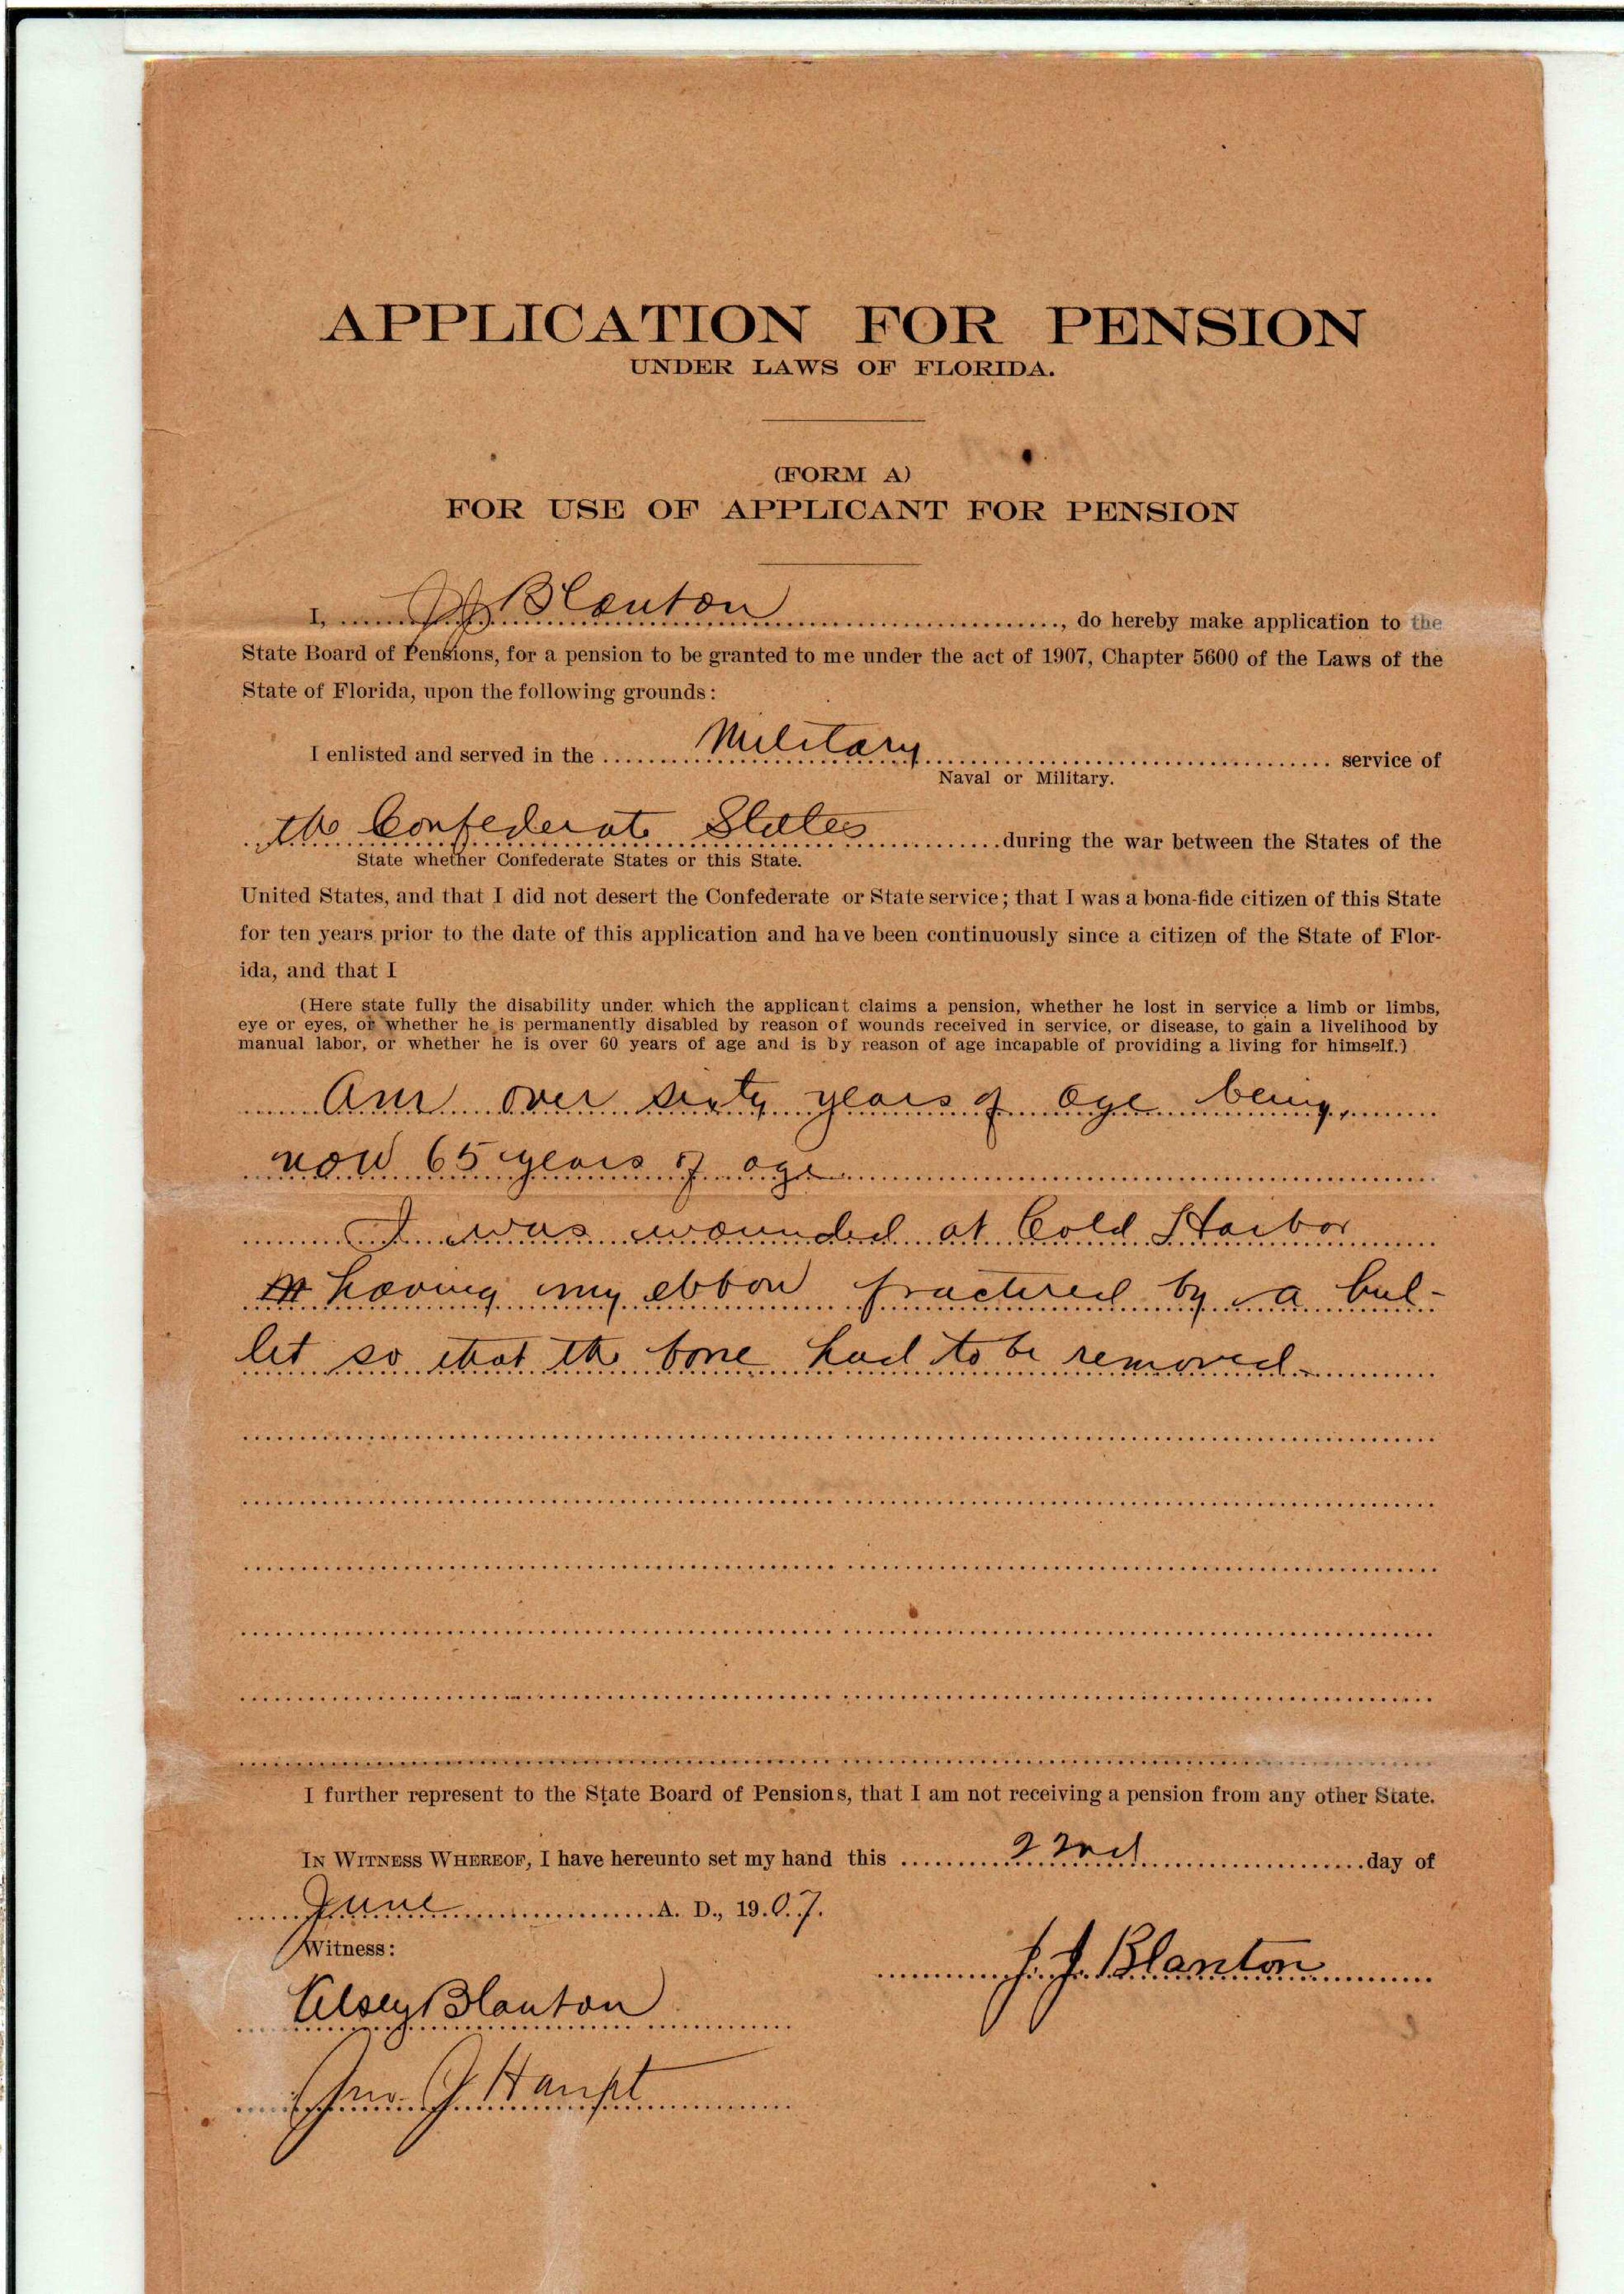 APPLICATION FOR PENSION
UNDER LAWS OF FLORIDA.
(FORM A)
FOR USE OF APPLICANT FOR PENSION
I, JJ Blanton, do hereby make application to the
State Board of Pensions, for a pension to be granted to me under the act of 1907, Chapter 5600 of the Laws of the
State of Florida, upon the following grounds:
I enlisted and served in the Military service of
Naval or Military.
the Confederate States during the war between the States of the
State whether Confederate States or this State.
United States, and that I did not desert the Confederate or State service; that I was a bona-fide citizen of this State
for ten years prior to the date of this application and have been continuously since a citizen of the State of Flor-
ida, and that I
(Here state fully the disability under which the applicant claims a pension, whether he lost in service a limb or limbs,
eye or eyes, or whether he is permanently disabled by reason of wounds received in service, or disease, to gain a livelihood by
manual labor, or whether he is over 60 years of age and is by reason of age incapable of providing a living for himself.)
Am over sixty years of age being
now 65 years of age
I was wounded at Cold Harbor
having my elbow fractured by a bul-
let so that the bone had to be removed
I further represent to the State Board of Pensions, that I am not receiving a pension from any other State.
IN WITNESS WHEREOF, I have hereunto set my hand this 22nd day of
June A. D., 1907.
Witness:
J. J. Blanton
Blanton
Jno. J Haupt